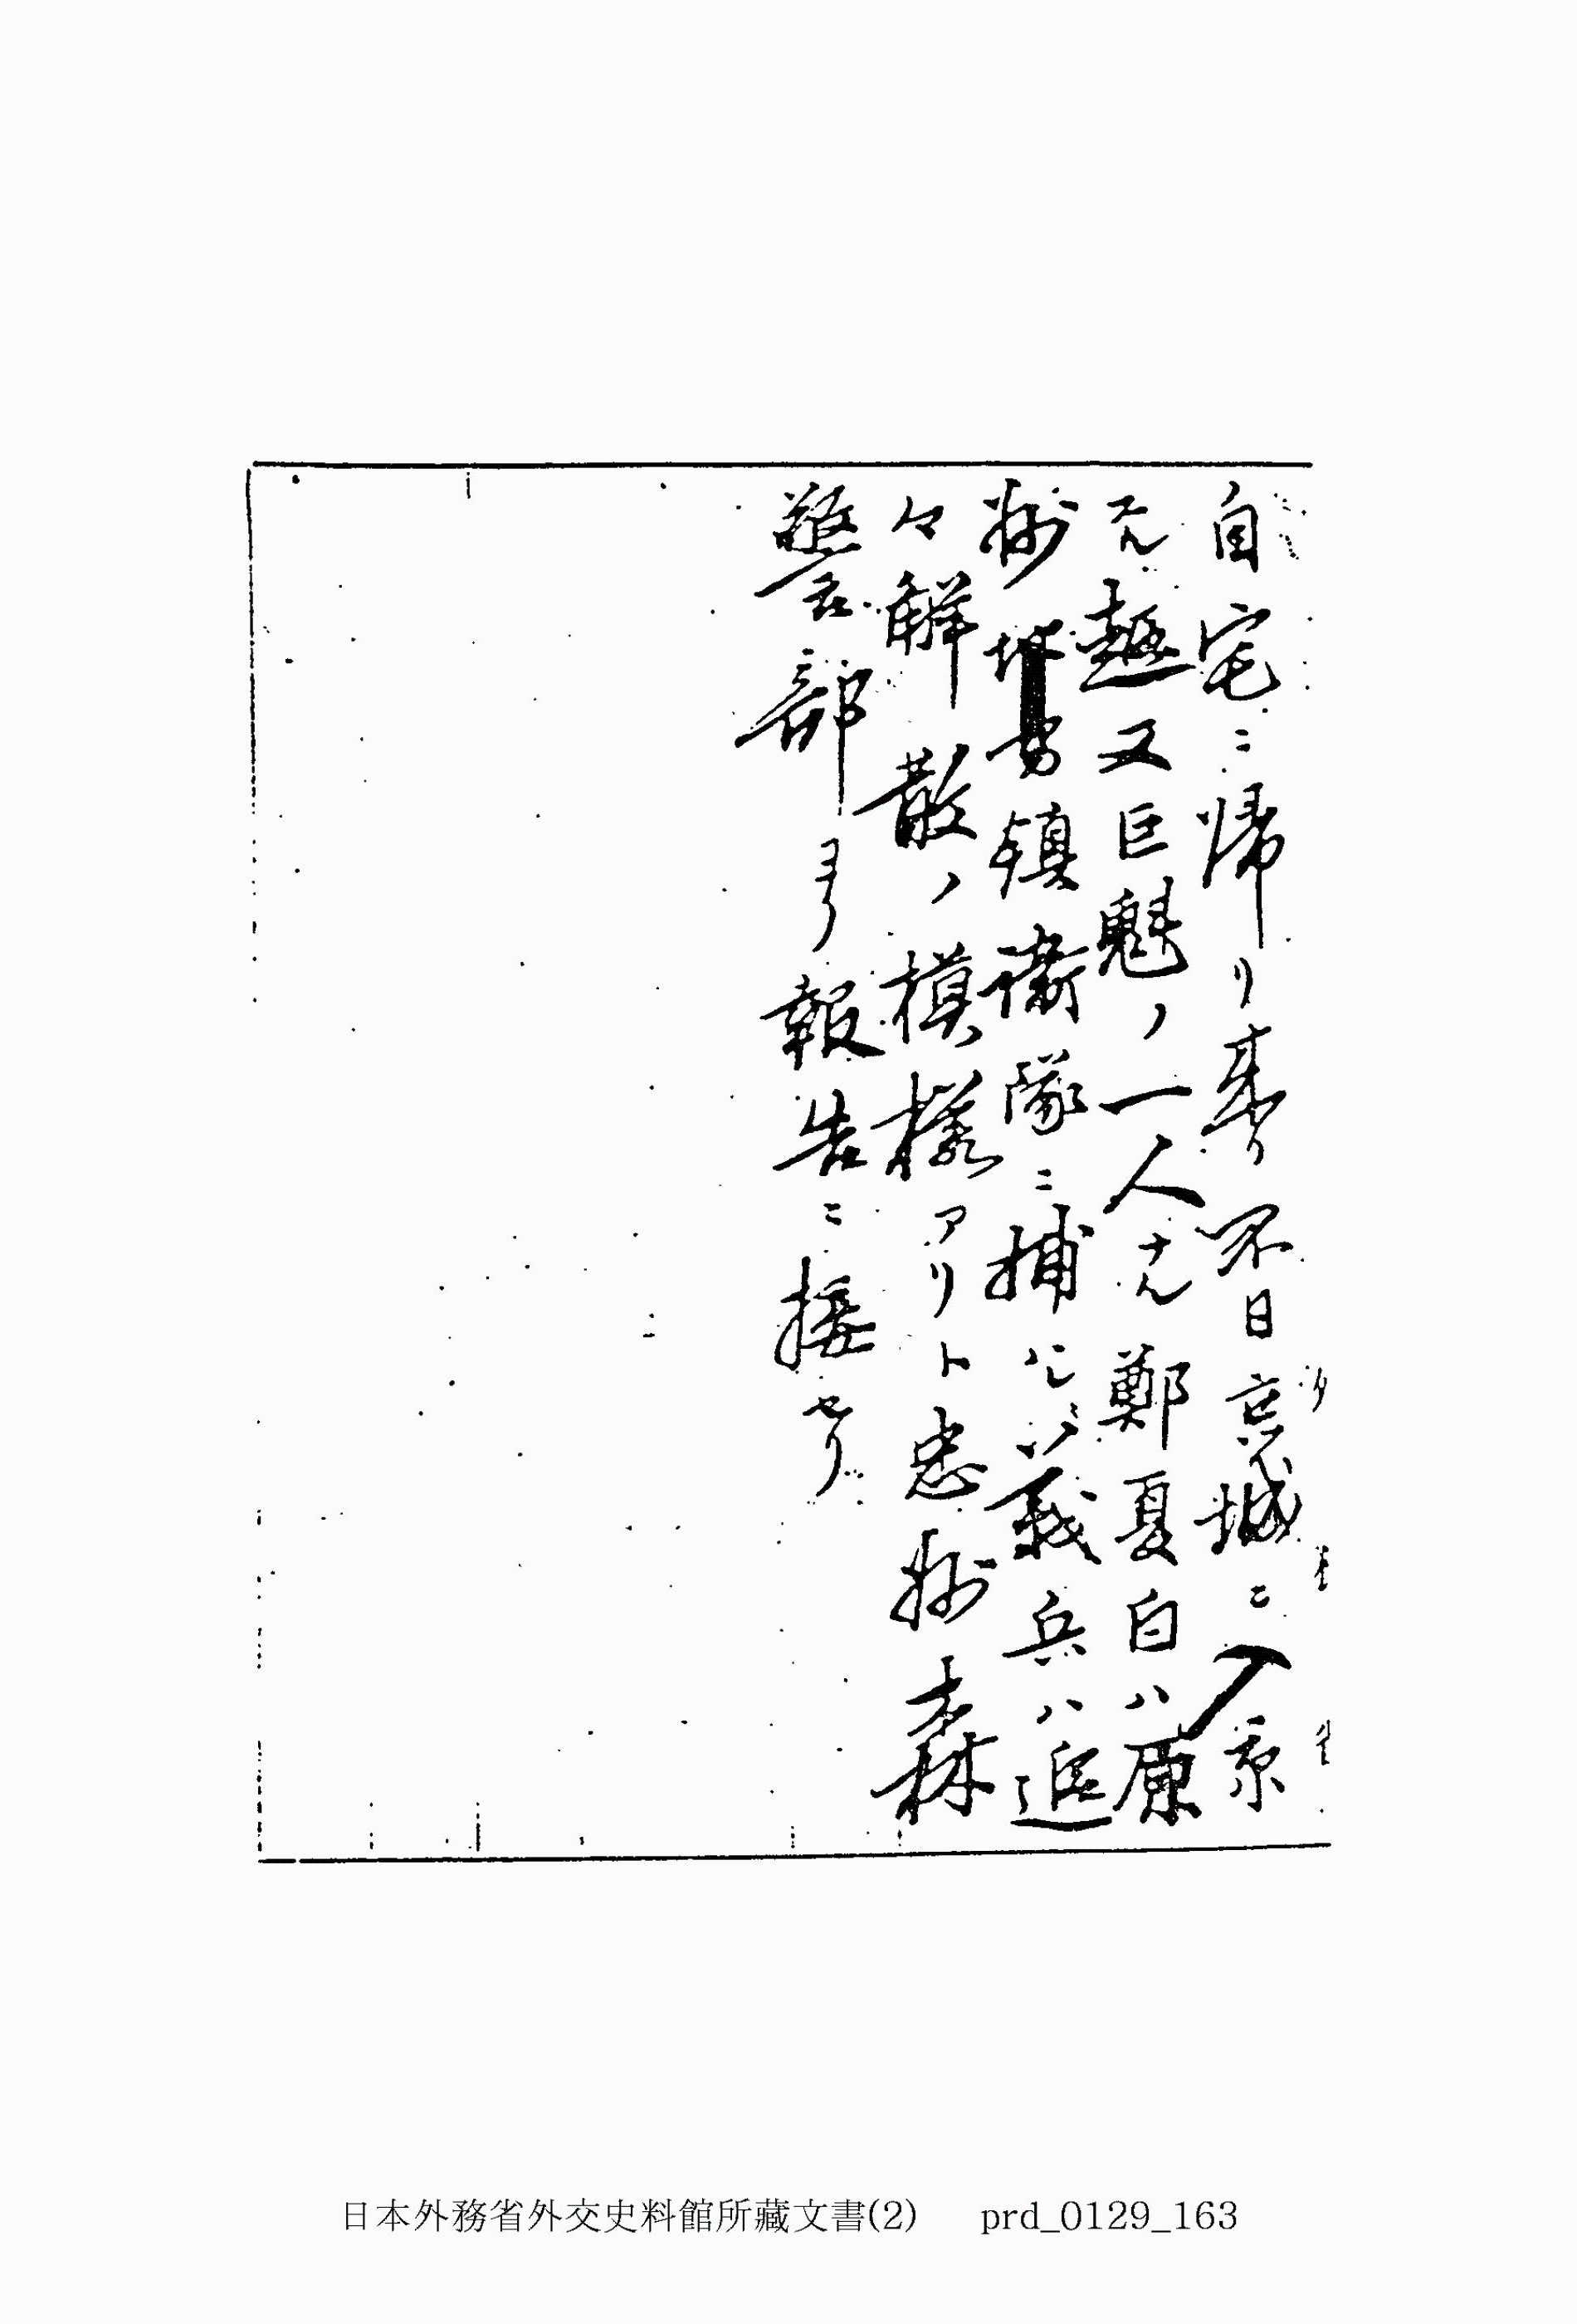 自宅ニ帰リ来リ不日京城ニ入京
スル趣又巨魁ノ一人ナル鄭夏白ハ原
州地方鎮衛隊ニ捕ハレ義兵ハ追
々解散ノ模様アリト忠州森
警部ヨリ報告ニ接セリ
日本外務省外交史料館所藏文書(2) prd_0129_163